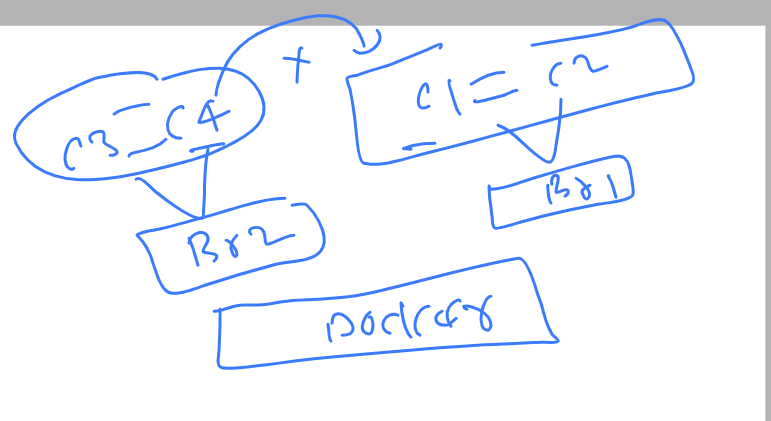 C3 = C4 + C1 = C2
Br2 Br1
Docker